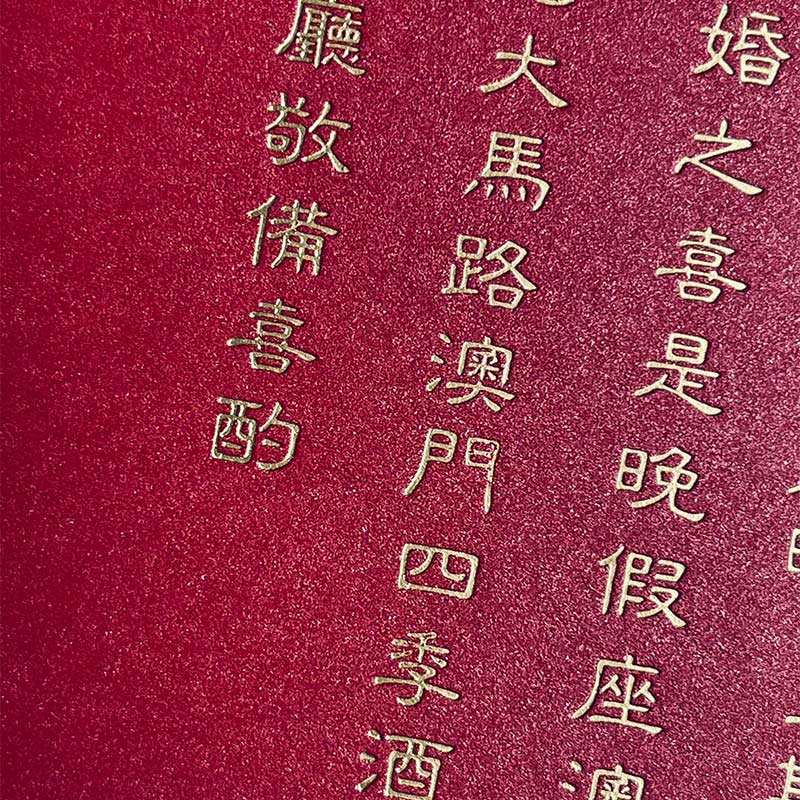 婚之喜是晚假座澳
大馬路澳門四季酒
廳敬備喜酌